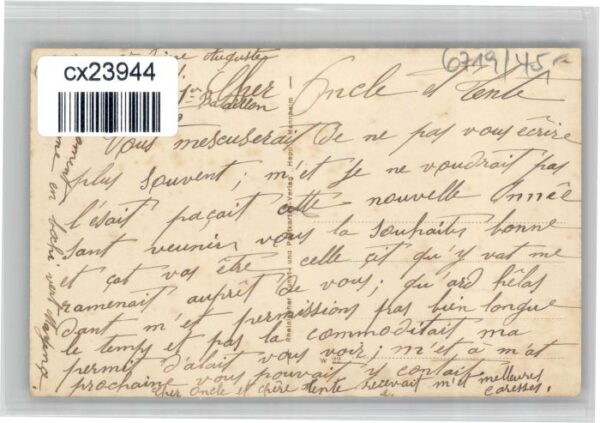 cx23944
6719/45
Auguste
1er
Bataillon
Cher Oncle et Tente
Vous mescuserait de ne pas vous écrire
plus souvent; m'et je ne voudrait pas
l'ésait paçait cette nouvelle Année
sant veunir vous la souhaiter bonne
et çat vas être celle çit qu'y vat me
ramenait auprêt de vous; qu'ard hélas
dant m'et permissions pas bien longue
le temps et pas la commoditait ma
permit d'alait vous voir; m'et à m'at
prochaine vous pouvait y contait
Cher Oncle et chère Tente recevait m'et meilleures
caresses.
Rheinischer Kunst- und Postkarten-Verlag Mannheim